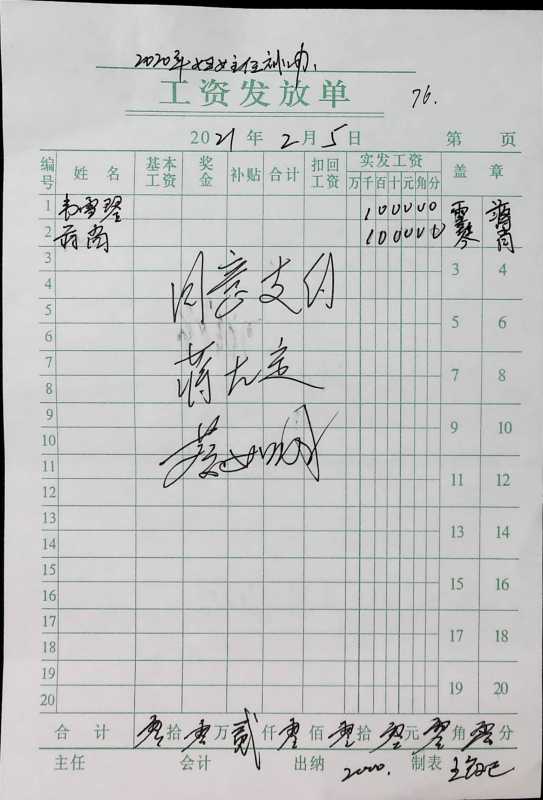 2020年妇女主任补助
工资发放单
76.
2021年2月5日 第 页
编号 姓名 基本工资 奖金 补贴 合计 扣回工资 实发工资 盖章
万 千 百 十 元 角 分
1 韦雪琴 100000 雪琴
2 蒋尚 100000
3 3 4
4
同意支付
5 5 6
6
7 7 8
蒋大定
8
9 9 10
10
11 11 12
12
13 13 14
14
15 15 16
16
17 17 18
18
19 19 20
20
合计 零拾零万贰仟零佰零拾零元零角零分
主任 会计 出纳 2000. 制表